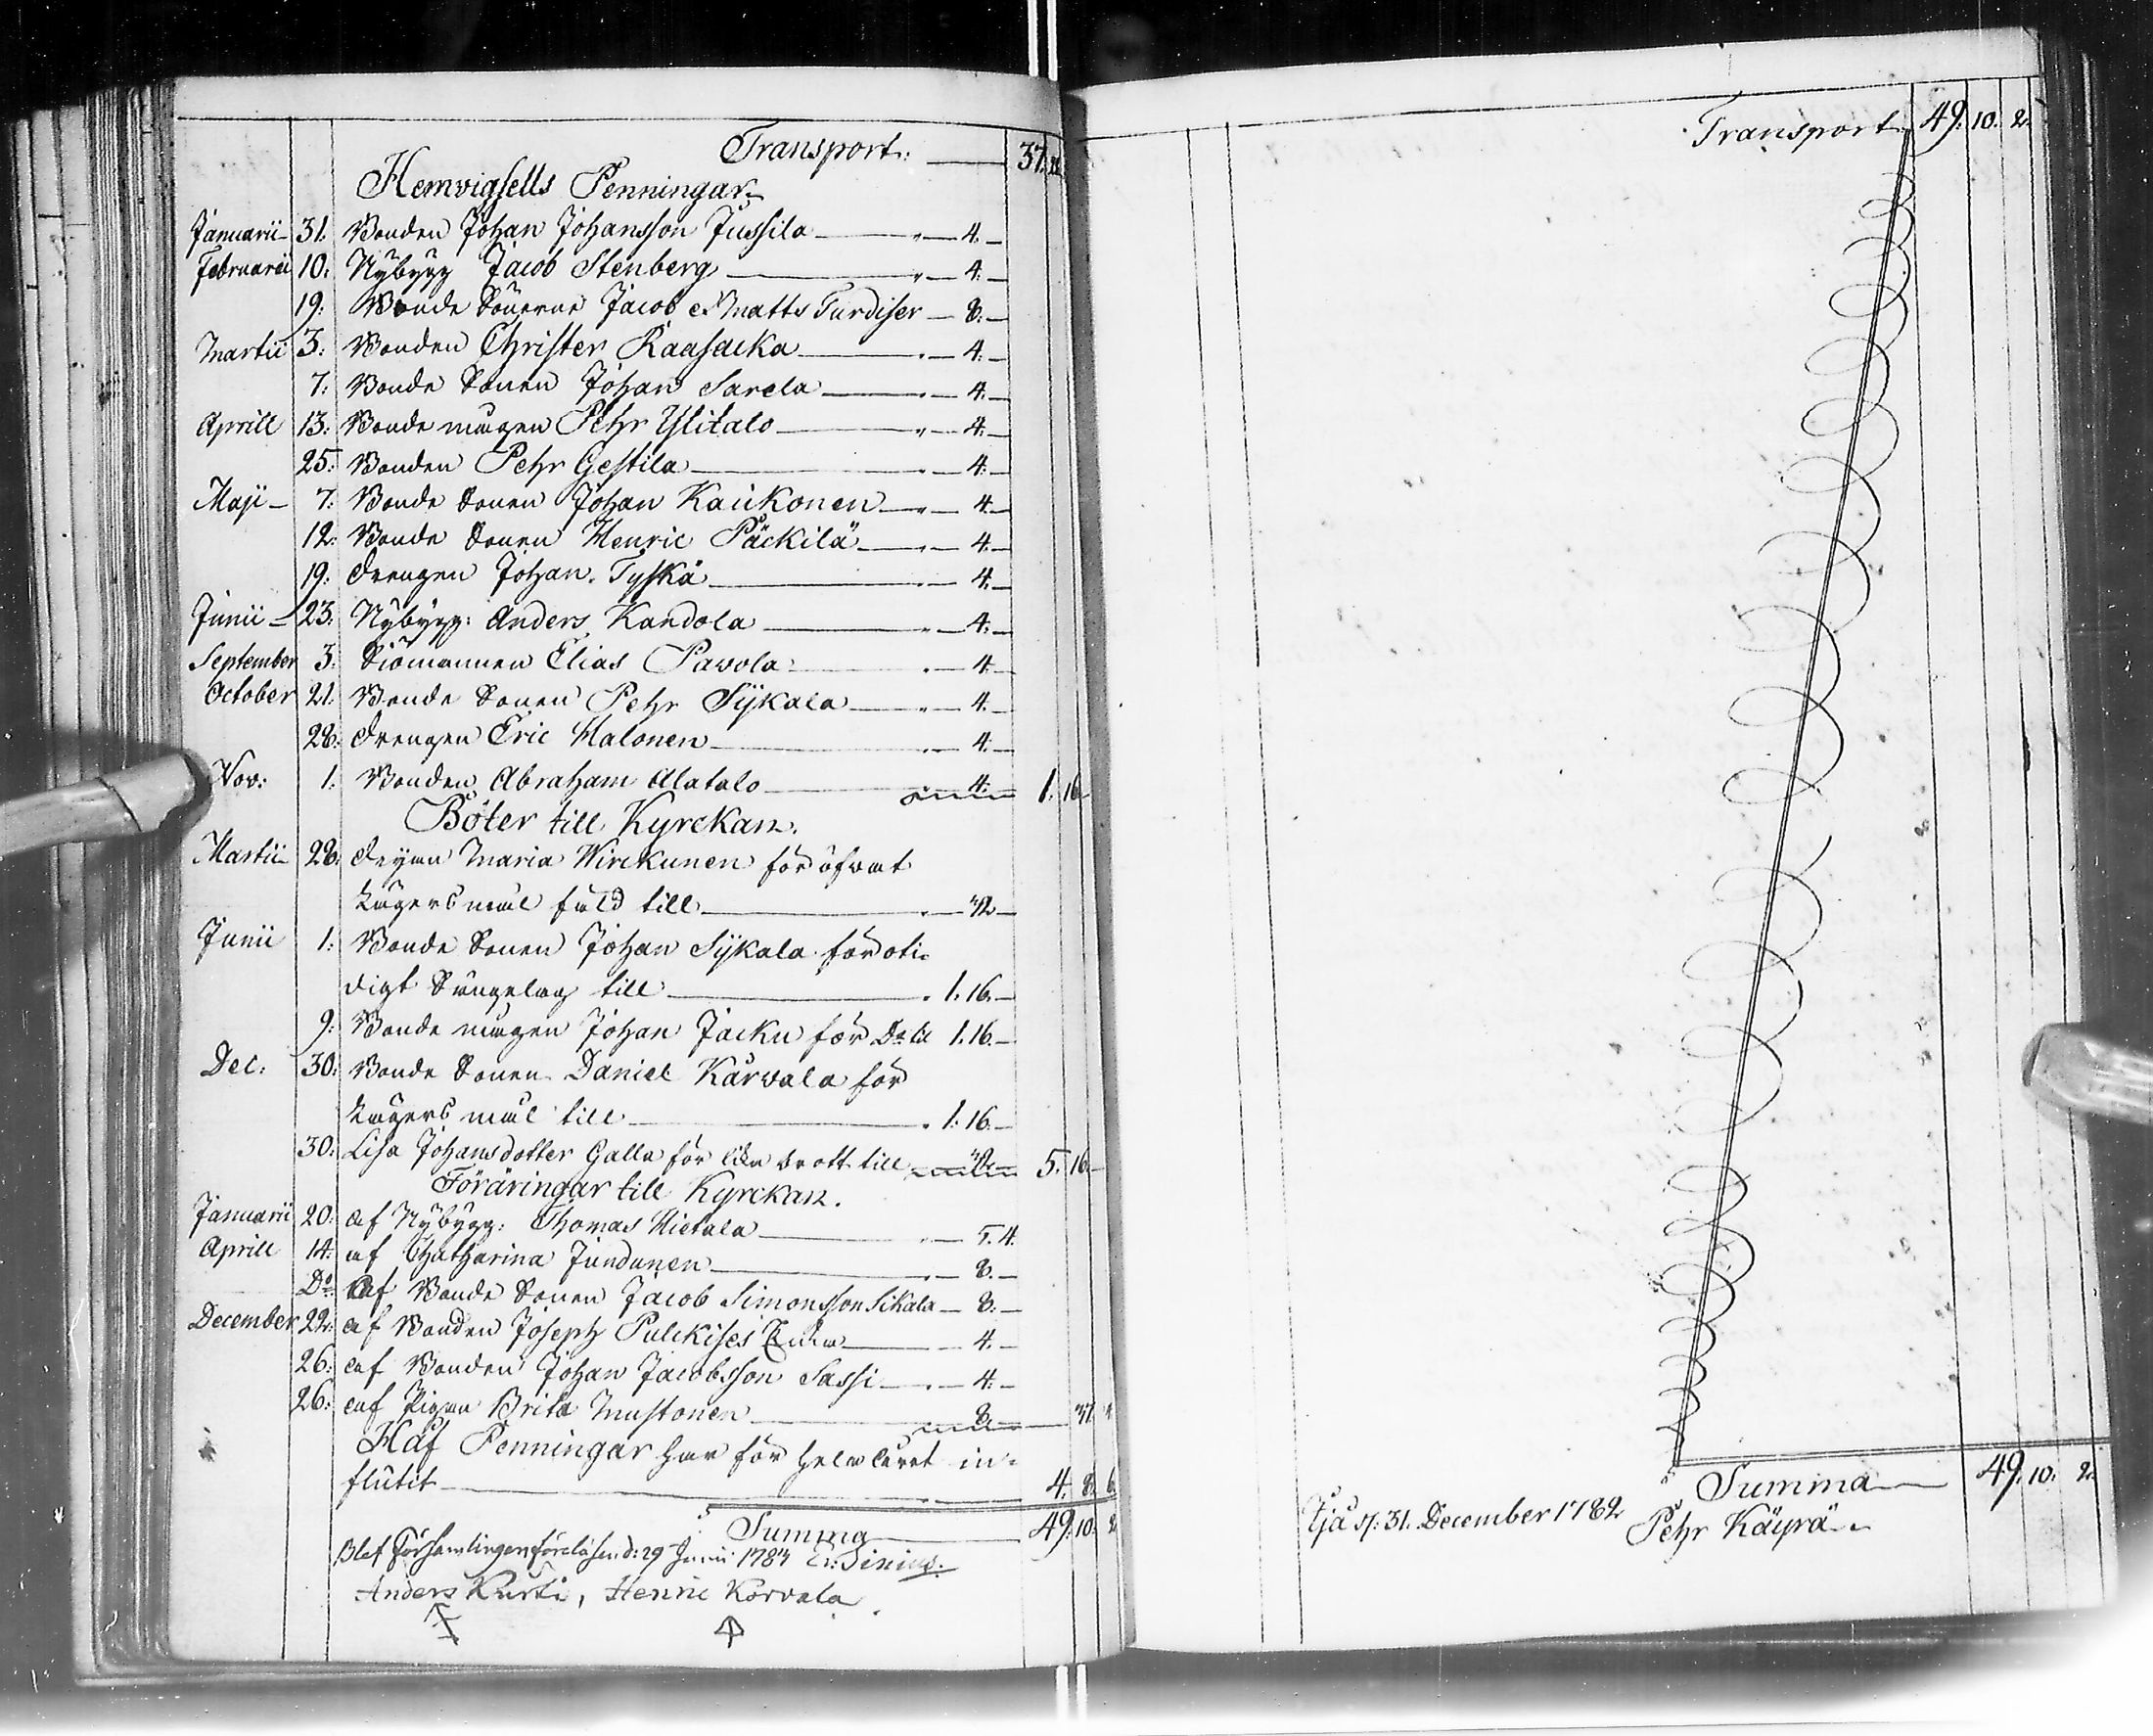 Transport: 37.
Hemvigsells Penningar
Januarii 31. Bonden Johan Johansson Jussila 4.
Februarii 10: Nybygg Jacob Stenberg 4.
19: Bonde Sönerne Jacob & Matts Turdiser 8.
Martii 3: Bonden Christer Raasacka 4.
7: Bonde Sonen Johan Sarela 4.
Aprill 13: Bonde mågen Pehr Ylitalo 4.
25: Bonden Pehr Gestila 4.
Maji 7: Bonde Sonen Johan Kaukonen 4.
12: Bonde Sonen Henric Päckilä 4.
19: Drengen Johan Tyskä 4.
Junii 23: Nybygg: Anders Kandola 4.
September 3: Siömannen Elias Pavola 4.
October 21: Bonde Sonen Pehr Sÿkala 4.
28: Drengen Eric Halonen 4.
Nov: 1: Bonden Abraham Alatalo 4. 1. 16.
Böter till Kyrckan.
Martii 28: Maria Wirckunen för
Lägersmål till
Junii 1: Bonde Sonen Johan Sÿkala för oti-
digt Sängelag till 1. 16.
9: Bonde mågen Johan Jacku för Do till 1. 16.
Dec: 30: Bonde Sonen Daniel Karvala för
Lägersmål till 1. 16.
30: Lisa Johansdotter Galla för lika brott till 5. 16.
Föräringar till Kyrckan.
Januarii 20: af Nybygg: Thomas Hietala 5. 4.
Aprill 14: af Chatharina Jundunen 8.
Do af Bonde Sonen Jacob Simonsson Sikala 8.
December 22: af Bonden Joseph Pulckises 4.
26: af Bonden Johan Jacobsson Sassi 4.
26: af Pigan Brita Mustonen 8.
Håf Penningar har för hela året in-
flutit 4. 8. 6
Summa 49. 10. 2
Blef Församlingen föreläsen d: 29 Junii 1783
Anders Kurti, Henric Korvala
Transport 49. 10. 2.
Summa 49. 10. 2.
Ijå d: 31. December 1782
Pehr Käyrä